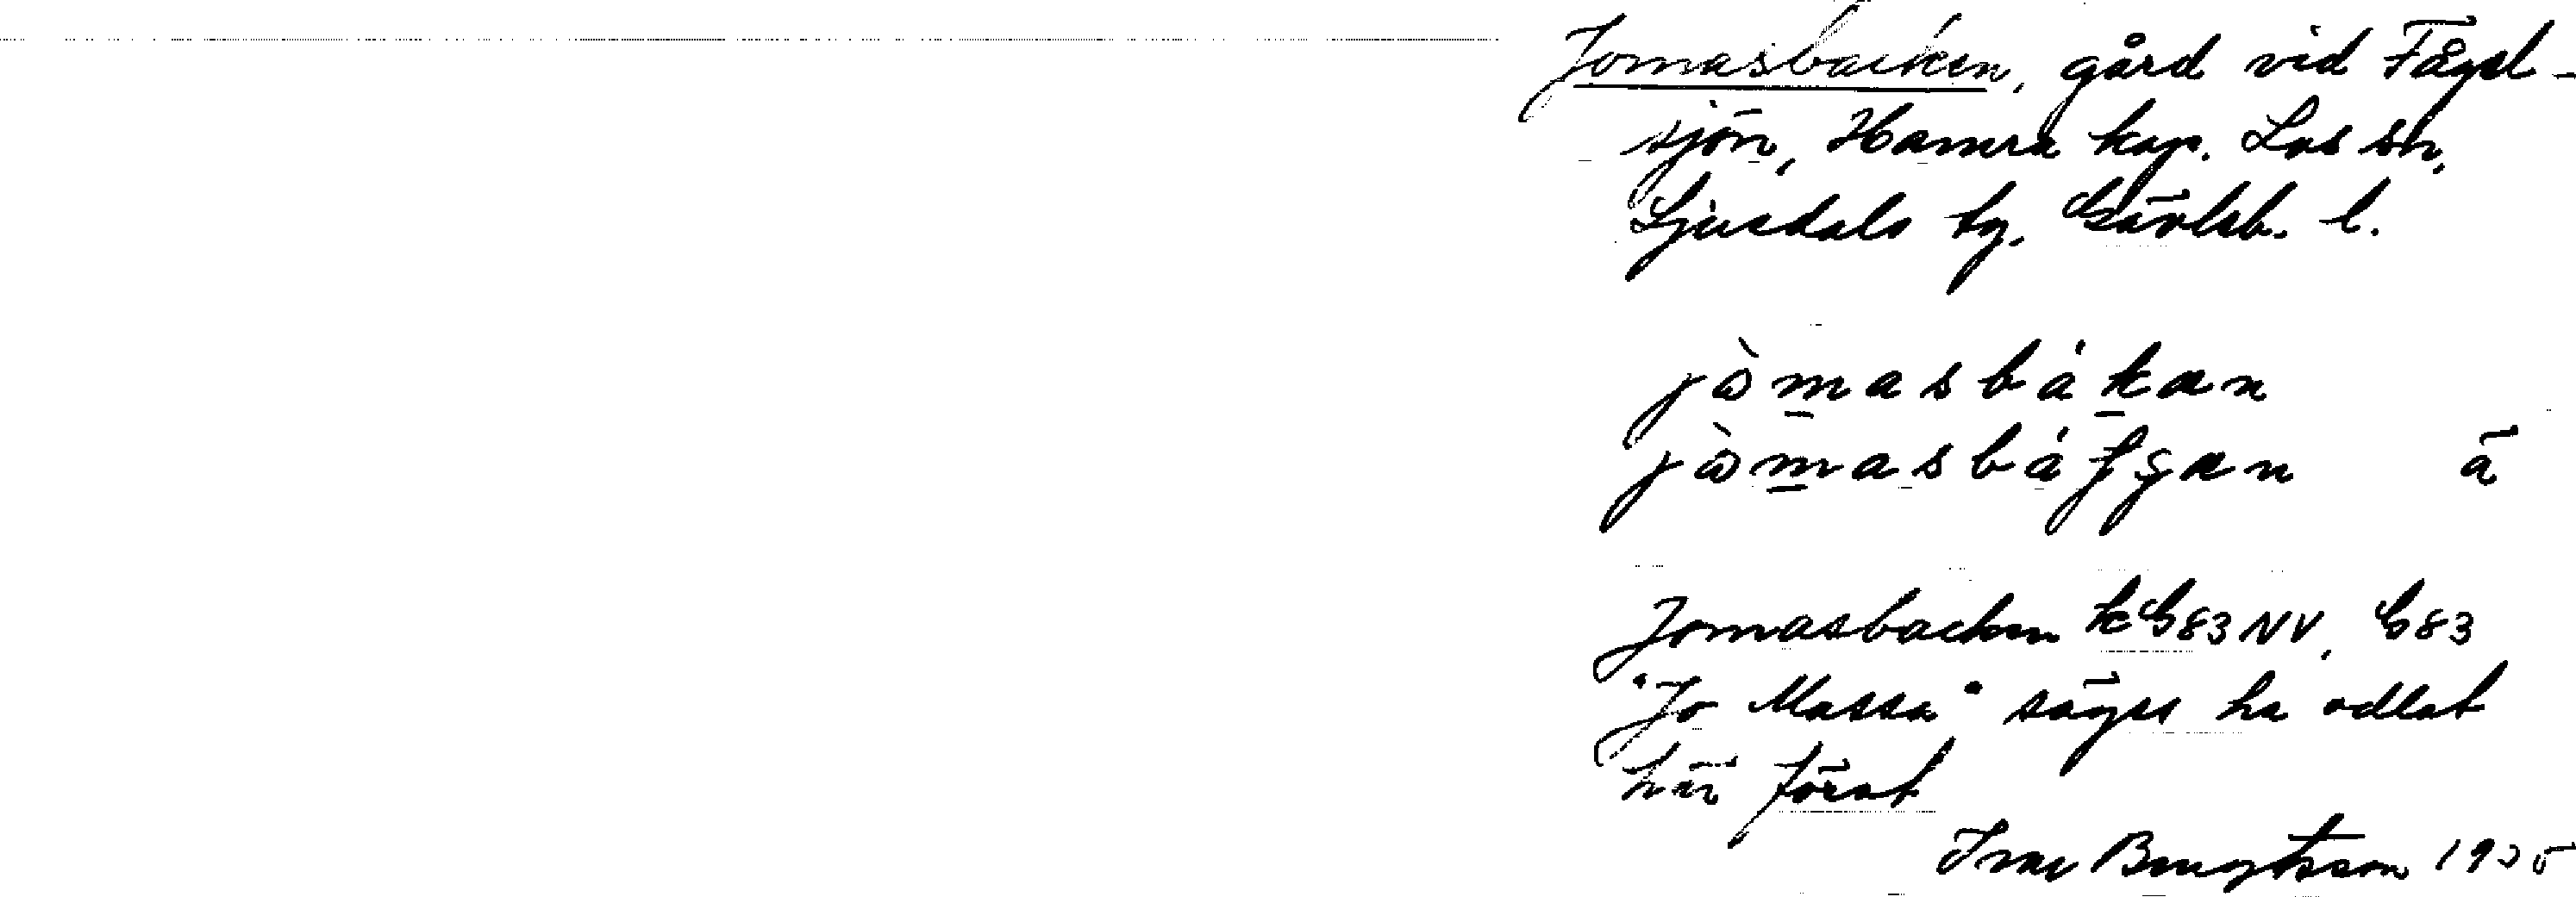 Jomasbacken, gård vid Fågel-
sjön, Hamra kap. Los sn,
Ljusdals tg, Gävleb. l.
jò̀masbákan
jò̀masbátʃan ä
Jomasbacken kG83NV, G83
"Jo Massa" säges ha odlat
här först
Ivar Bengtsson 1935